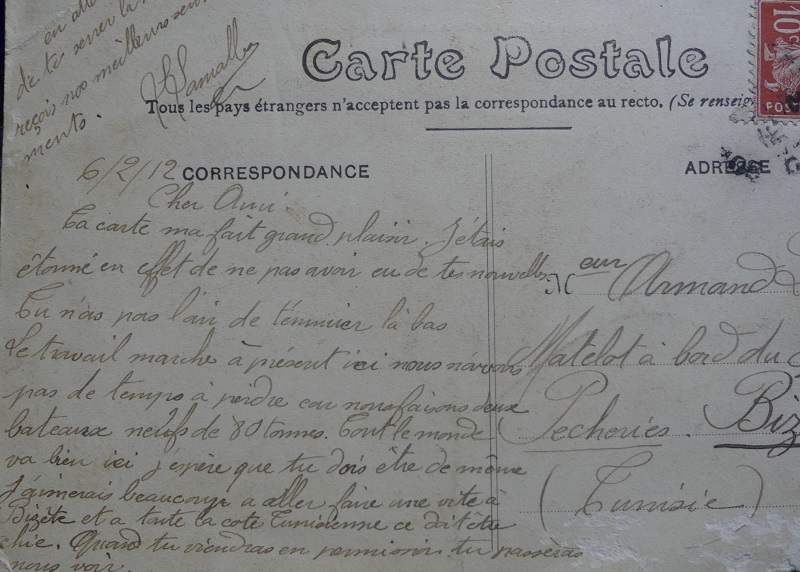 en att
de te serrer la
reçois nos meilleurs sen
ments.
Carte Postale
Tous les pays étrangers n'acceptent pas la correspondance au recto. (Se renseig
10
POS
6/2/12 CORRESPONDANCE
ADRESSE
Cher Ami
Ta carte ma fait grand plaisir. J'étais
étonné en effet de ne pas avoir eu de tes nouvelles.
Tu n'as pas l'air de t'ennuier là bas
Le travail marche à présent ici nous n'avons
pas de temps à perdre car nous faisons deux
bateaux neufs de 80 tonnes. Tout le monde
va bien ici j'espère que tu dois être de même
J'aimerais beaucoup a aller faire une vite à
Bizete et a toute la cote Tunisienne ce doit être
chic. Quand tu viendras en permission tu passeras
nous voir.
Meur Armand
Matelot à bord du
Pecheries. Biz
(Tunisie)